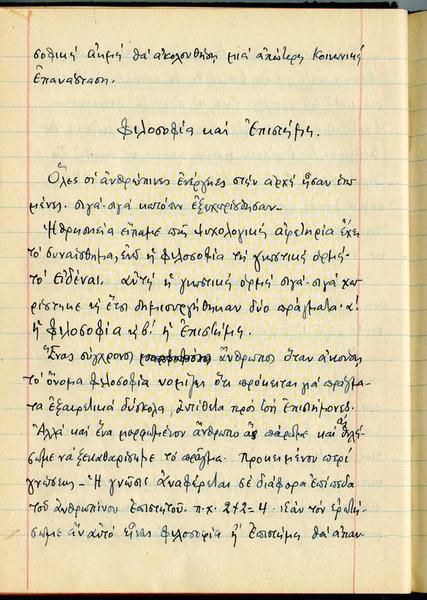 σοφικὴ ἀκμὴ θὰ ἀκολουθήσῃ μιὰ ἀπώτερη Κοινωνικὴ
Ἐπανάσταση.
Φιλοσοφία καὶ Ἐπιστήμη.
Ὅλες οἱ ἀνθρώπινες ἐνέργειες στὴν ἀρχὴ ἦσαν ἑνω
μένες. σιγά-σιγά κατόπιν ἐξεχωρίσθησαν-
Ἡ θρησκεία εἴπαμε πὼς ψυχολογικὴ ἀφετηρία ἔχει
τὸ συναίσθημα, ἐνῶ ἡ φιλοσοφία τὴ γνωστικὴ ὁρμή-
τὸ Εἰδέναι. αὐτὴ ἡ γνωστικὴ ὁρμὴ σιγά-σιγά χω
ρίστηκε κι ἔτσι δημιουργήθηκαν δύο πράγματα. α!
ἡ Φιλοσοφία κ β! ἡ Ἐπιστήμη.
Ἕνας σύγχρονος ἄνθρωπος ὅταν ἀκούσῃ
τὸ ὄνομα φιλοσοφία νομίζει ὅτι πρόκειται γιὰ πράγμα-
τα ἐξαιρετικὰ δύσκολα, ἀντίθετα πρὸς τοὺς ἐπιστήμονες.
Ἀλλὰ καὶ ἕνα μορφωμένον ἄνθρωπο ἂς πάρωμε καὶ ἂς θελή-
σωμε νὰ ξεκαθαρίσωμε τὸ πράγμα. Προκειμένου περὶ
γνώσεως - Ἡ γνῶσις ἀναφέρεται σὲ διάφορα ἐπίπεδα
τοῦ ἀνθρωπίνου ἐπιστητοῦ. π.χ. 2+2=4. ἐὰν τὸν ἐρωτή-
σωμε ἂν αὐτὸ εἶναι φιλοσοφία ἢ ἐπιστήμη θὰ ἀπαν-